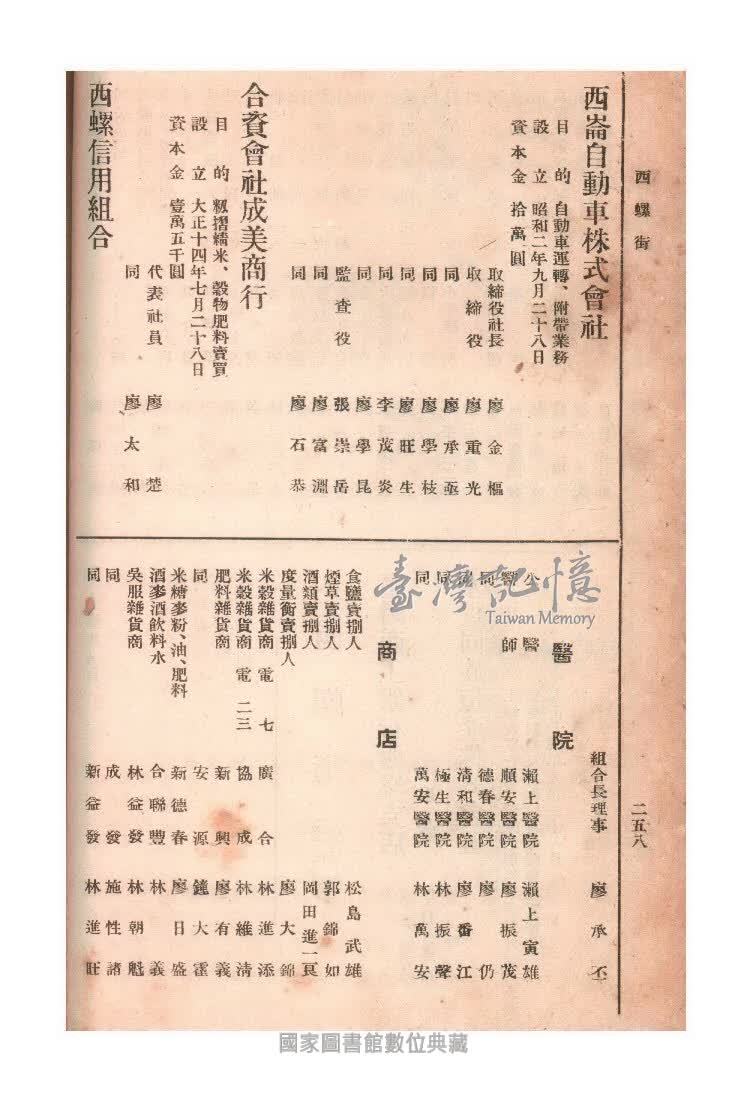 西螺街
二五八
西崙自動車株式會社
目的 自動車運轉、附帶業務
設立 昭和二年九月二十八日
資本金 拾萬圓
取締役社長 廖金樞
取締役 廖重光
同 廖承亟
同 廖學枝
同 廖旺生
同 李茂炎
同 廖學昆
監査役 張崇岳
同 廖富淵
同 廖石恭
合資會社成美商行
目的 籾摺糯米、穀物肥料賣買
設立 大正十四年七月二十八日
資本金 壹萬五千圓
代表社員 廖楚
同 廖太和
西螺信用組合
組合長理事 廖承丕
醫院
公醫 瀨上醫院 瀨上寅雄
醫師 順安醫院 廖振茂
同 德春醫院 廖仍
同 清和醫院 廖番江
同 極生醫院 林振聲
同 萬安醫院 林萬安
商店
食鹽賣捌人 松島武雄
煙草賣捌人 郭錦如
酒類賣捌人 岡田進一
度量衡賣捌人 廖大錦
米穀雜貨商 電 七 廣合 林進添
米穀雜貨商 電 二三 協成 林維清
肥料雜貨商 新興 廖有義
同 安源 鐘大霍
米糖麥粉、油、肥料 新德春 廖日盛
酒麥酒飲料水 合聯豐 林義
吳服雜貨商 林益發 林朝魁
同 成發 施性諸
同 新益發 林進旺
臺灣記憶
Taiwan Memory
國家圖書館數位典藏